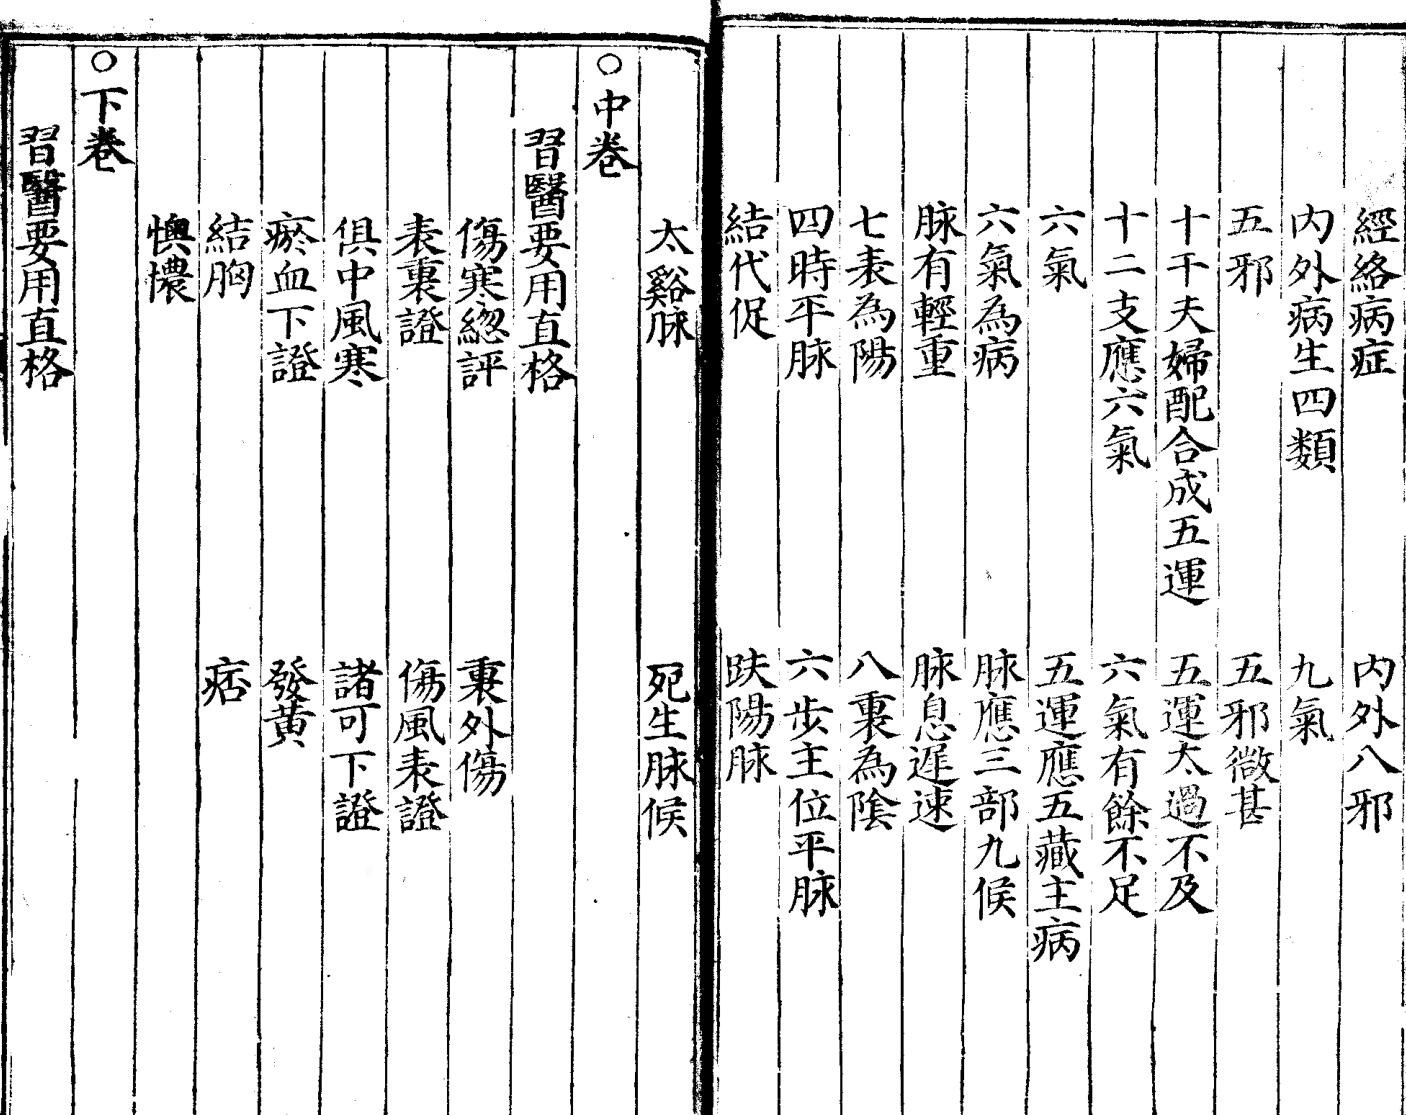 經絡病症　內外八邪
內外病生四類　九氣
五邪　五邪微甚
十干夫婦配合成五運　五運太過不及
十二支應六氣　六氣有餘不足
六氣　五運應五藏主病
六氣為病　脉應三部九候
脉有輕重　脉息遲速
七表為陽　八裏為陰
四時平脉　六步主位平脉
結代促　趺陽脉
太谿脉　死生脉候
○中卷
習醫要用直格
傷寒緫評　裏外傷
表裏證　傷風表證
俱中風寒　諸可下證
瘀血下證　發黃
結胸　痞
懊憹
○下卷
習醫要用直格